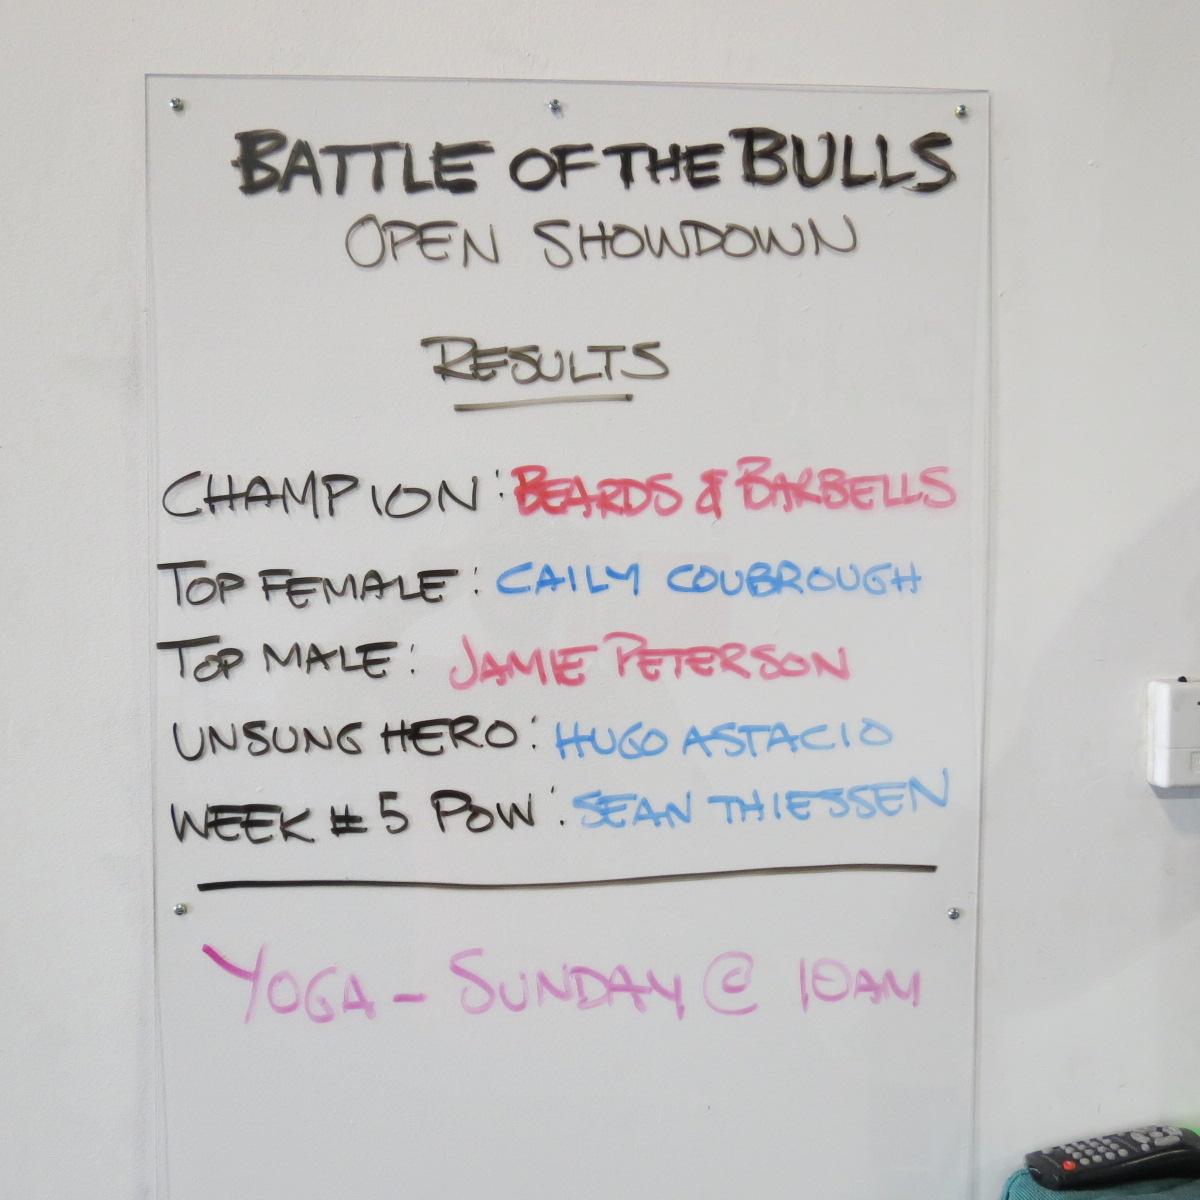 BATTLE OF THE BULLS
OPEN SHOWDOWN
RESULTS
CHAMPION: BEARDS & BARBELLS
TOP FEMALE: CAILY COUBROUGH
TOP MALE: JAMIE PETERSON
UNSUNG HERO: HUGO ASTACIO
WEEK #5 POW: SEAN THIESSEN
YOGA - SUNDAY @ 10AM